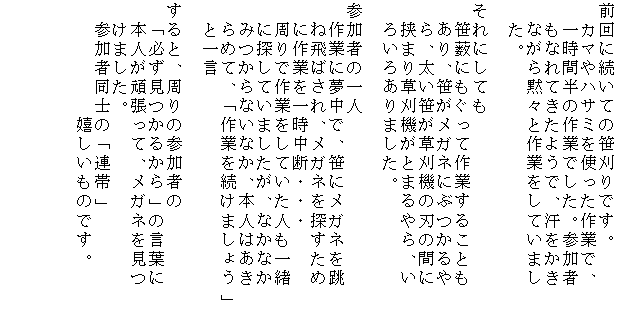 前回に続いての笹刈りです。
カマやハサミを使った作業で、
一時間半の作業でした。参加者
もなれてきたようで、汗をかき
ながら黙々と作業をしていまし
た。
それにしても
笹藪にもぐって作業することも
あり、笹がメガネにぶつかるや
ら、太い笹が草刈機の刃の間に
挟まり草刈機がとまるやら、い
ろいろありました。
参加者の一人
作業に夢中で、笹にメガネを跳
ね飛ばされ、メガネを探すため
に作業を一時中断・・・
周りで作業をしていた人も一緒
に探していましたが、なかなか
みつからないなか、本人はあき
らめて、「作業を続けましょう」
と一言
すると、周りの参加者の
「必ず見つかるから」の言葉に
本人が頑張って、メガネを見つ
けました。
参加者同士の「連帯」
嬉しいものです。